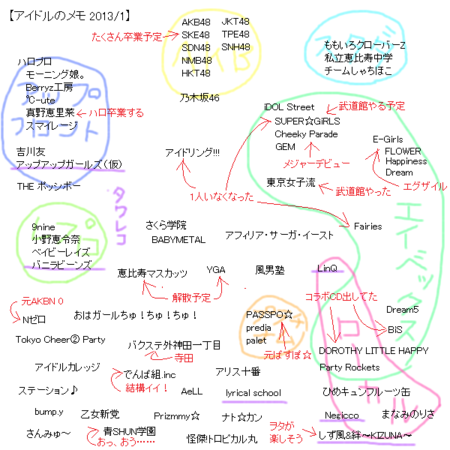 【アイドルのメモ 2013/1】
AKB48
SKE48
SDN48
NMB48
HKT48
JKT48
TPE48
SNH48
たくさん卒業予定
乃木坂46
ももいろクローバーZ
私立恵比寿中学
チームしゃちほこ
ハロプロ
モーニング娘。
Berryz工房
℃-ute
真野恵里菜
ハロ卒業する
スマイレージ
アップフロント
吉川友
アップアップガールズ(仮)
THE ポッシボー
タワレコ
アイドリング!!!
1人いなくなった
iDOL Street
SUPER☆GiRLS
Cheeky Parade
GEM
武道館やる予定
メジャーデビュー
東京女子流
武道館やった
E-Girls
FLOWER
Happiness
Dream
エグザイル
Fairies
エイベックス
9nine
小野恵令奈
ベイビーレイズ
バニラビーンズ
さくら学院
BABYMETAL
アフィリア・サーガ・イースト
恵比寿マスカッツ
YGA
解散予定
風男塾
LinQ
コラボCD出してた
Dream5
BiS
元AKBN 0
Nゼロ
おはガールちゅ！ちゅ！ちゅ！
PASSPO☆
predia
palet
元ぱすぽ☆
DOROTHY LITTLE HAPPY
Party Rockets
ローカル
Tokyo Cheer② Party
バクステ外神田一丁目
寺田
アイドルカレッジ
でんぱ組.inc
結構イイ！
アリス十番
ひめキュンフルーツ缶
ステーション♪
AeLL
lyrical school
Negicco
まなみのりさ
bump.y
乙女新党
Prizmmy☆
ナト☆カン
ヲタが
楽しそう
さんみゅ～
青SHUN学園
おっ、おう……
怪傑トロピカル丸
しず風&絆～KIZUNA～